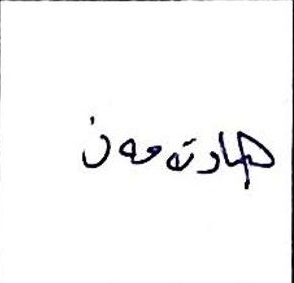 هاوتەمەن